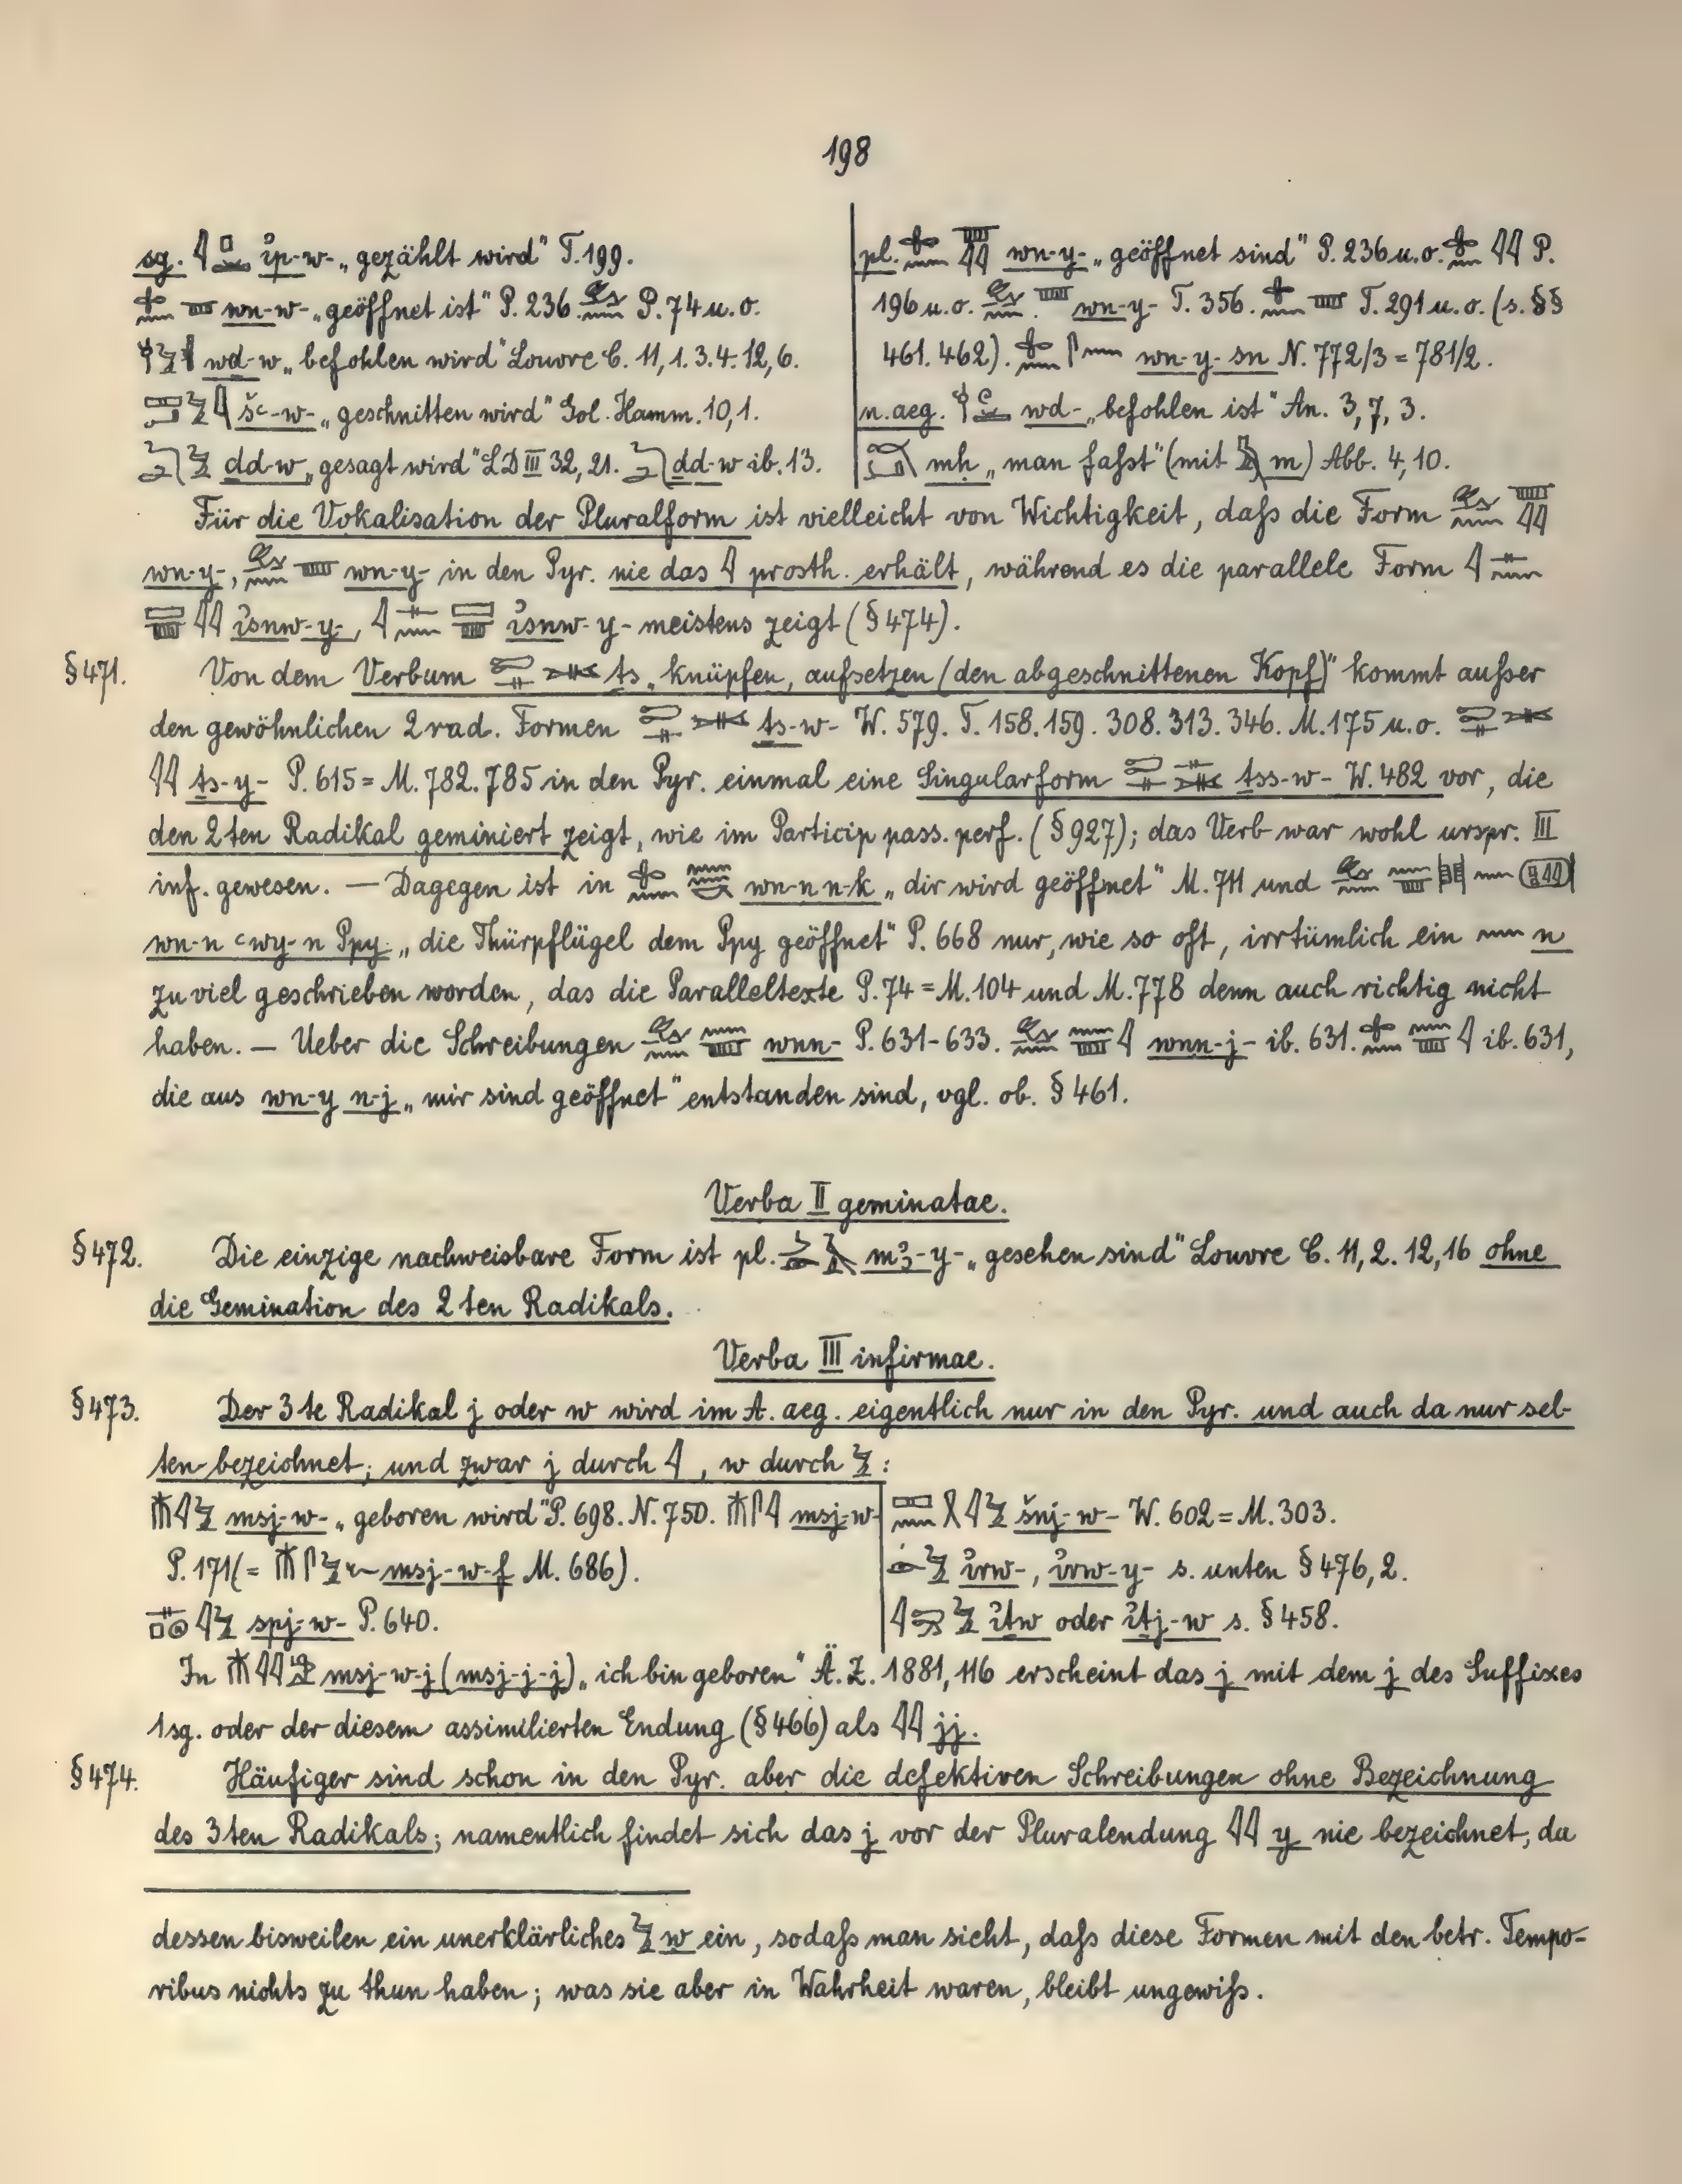 198
sg. ỉp-w- „gezählt wird" T. 199.
wn-w- „geöffnet ist" P. 236. P. 74 u. o.
wd-w „befohlen wird" Louvre C. 11, 1. 3. 4. 12, 6.
šꜥ-w- „geschnitten wird" Gol. Hamm. 10, 1.
dd-w „gesagt wird" LD III 32, 21. dd-w ib. 13.
pl. wn-y- „geöffnet sind" P. 236 u. o. P.
196 u. o. wn-y- T. 356. T. 291 u. o. (s. §§
461. 462). wn-y-sn N. 772/3 = 781/2.
n. aeg. wd- „befohlen ist" An. 3, 7, 3.
mḥ „man faßt" (mit m) Abb. 4, 10.
Für die Vokalisation der Pluralform ist vielleicht von Wichtigkeit, daß die Form
wn-y-, wn-y- in den Pyr. nie das prosth. erhält, während es die parallele Form
ỉsnw-y-, ỉsnw-y- meistens zeigt (§ 474).
§ 471. Von dem Verbum ts „knüpfen, aufsetzen (den abgeschnittenen Kopf)" kommt außer
den gewöhnlichen 2 rad. Formen ts-w- W. 579. T. 158. 159. 308. 313. 346. M. 175 u. o.
ts-y- P. 615 = M. 782. 785 in den Pyr. einmal eine Singularform tss-w- W. 482 vor, die
den 2ten Radikal geminiert zeigt, wie im Particip pass. perf. (§ 927); das Verb war wohl urspr. III
inf. gewesen. — Dagegen ist in wn-n n-k „dir wird geöffnet" M. 711 und
wn-n ꜥwy-n Ppy „die Thürpflügel dem Ppy geöffnet" P. 668 nur, wie so oft, irrtümlich ein n
zu viel geschrieben worden, das die Paralleltexte P. 74 = M. 104 und M. 778 denn auch richtig nicht
haben. — Ueber die Schreibungen wnn- P. 631-633. wnn-j- ib. 631. ib. 631,
die aus wn-y n-j „mir sind geöffnet" entstanden sind, vgl. ob. § 461.
Verba II geminatae.
§ 472. Die einzige nachweisbare Form ist pl. mꜣ-y- „gesehen sind" Louvre C. 11, 2. 12, 16 ohne
die Gemination des 2ten Radikals.
Verba III infirmae.
§ 473. Der 3te Radikal j oder w wird im A. aeg. eigentlich nur in den Pyr. und auch da nur sel-
ten bezeichnet; und zwar j durch , w durch :
msj-w- „geboren wird" P. 698. N. 750. msj-w-
P. 171 (= msj-w-f M. 686).
spj-w- P. 640.
šnj-w- W. 602 = M. 303.
ỉrw-, ỉrw-y- s. unten § 476, 2.
ỉtw oder ỉtj-w s. § 458.
In msj-w-j (msj-j-j) „ich bin geboren" Ä. Z. 1881, 116 erscheint das j mit dem j des Suffixes
1 sg. oder der diesem assimilierten Endung (§ 466) als jj.
§ 474. Häufiger sind schon in den Pyr. aber die defektiven Schreibungen ohne Bezeichnung
des 3ten Radikals; namentlich findet sich das j vor der Pluralendung y nie bezeichnet, da
dessen bisweilen ein unerklärliches w ein, sodaß man sieht, daß diese Formen mit den betr. Tempo-
ribus nichts zu thun haben; was sie aber in Wahrheit waren, bleibt ungewiß.